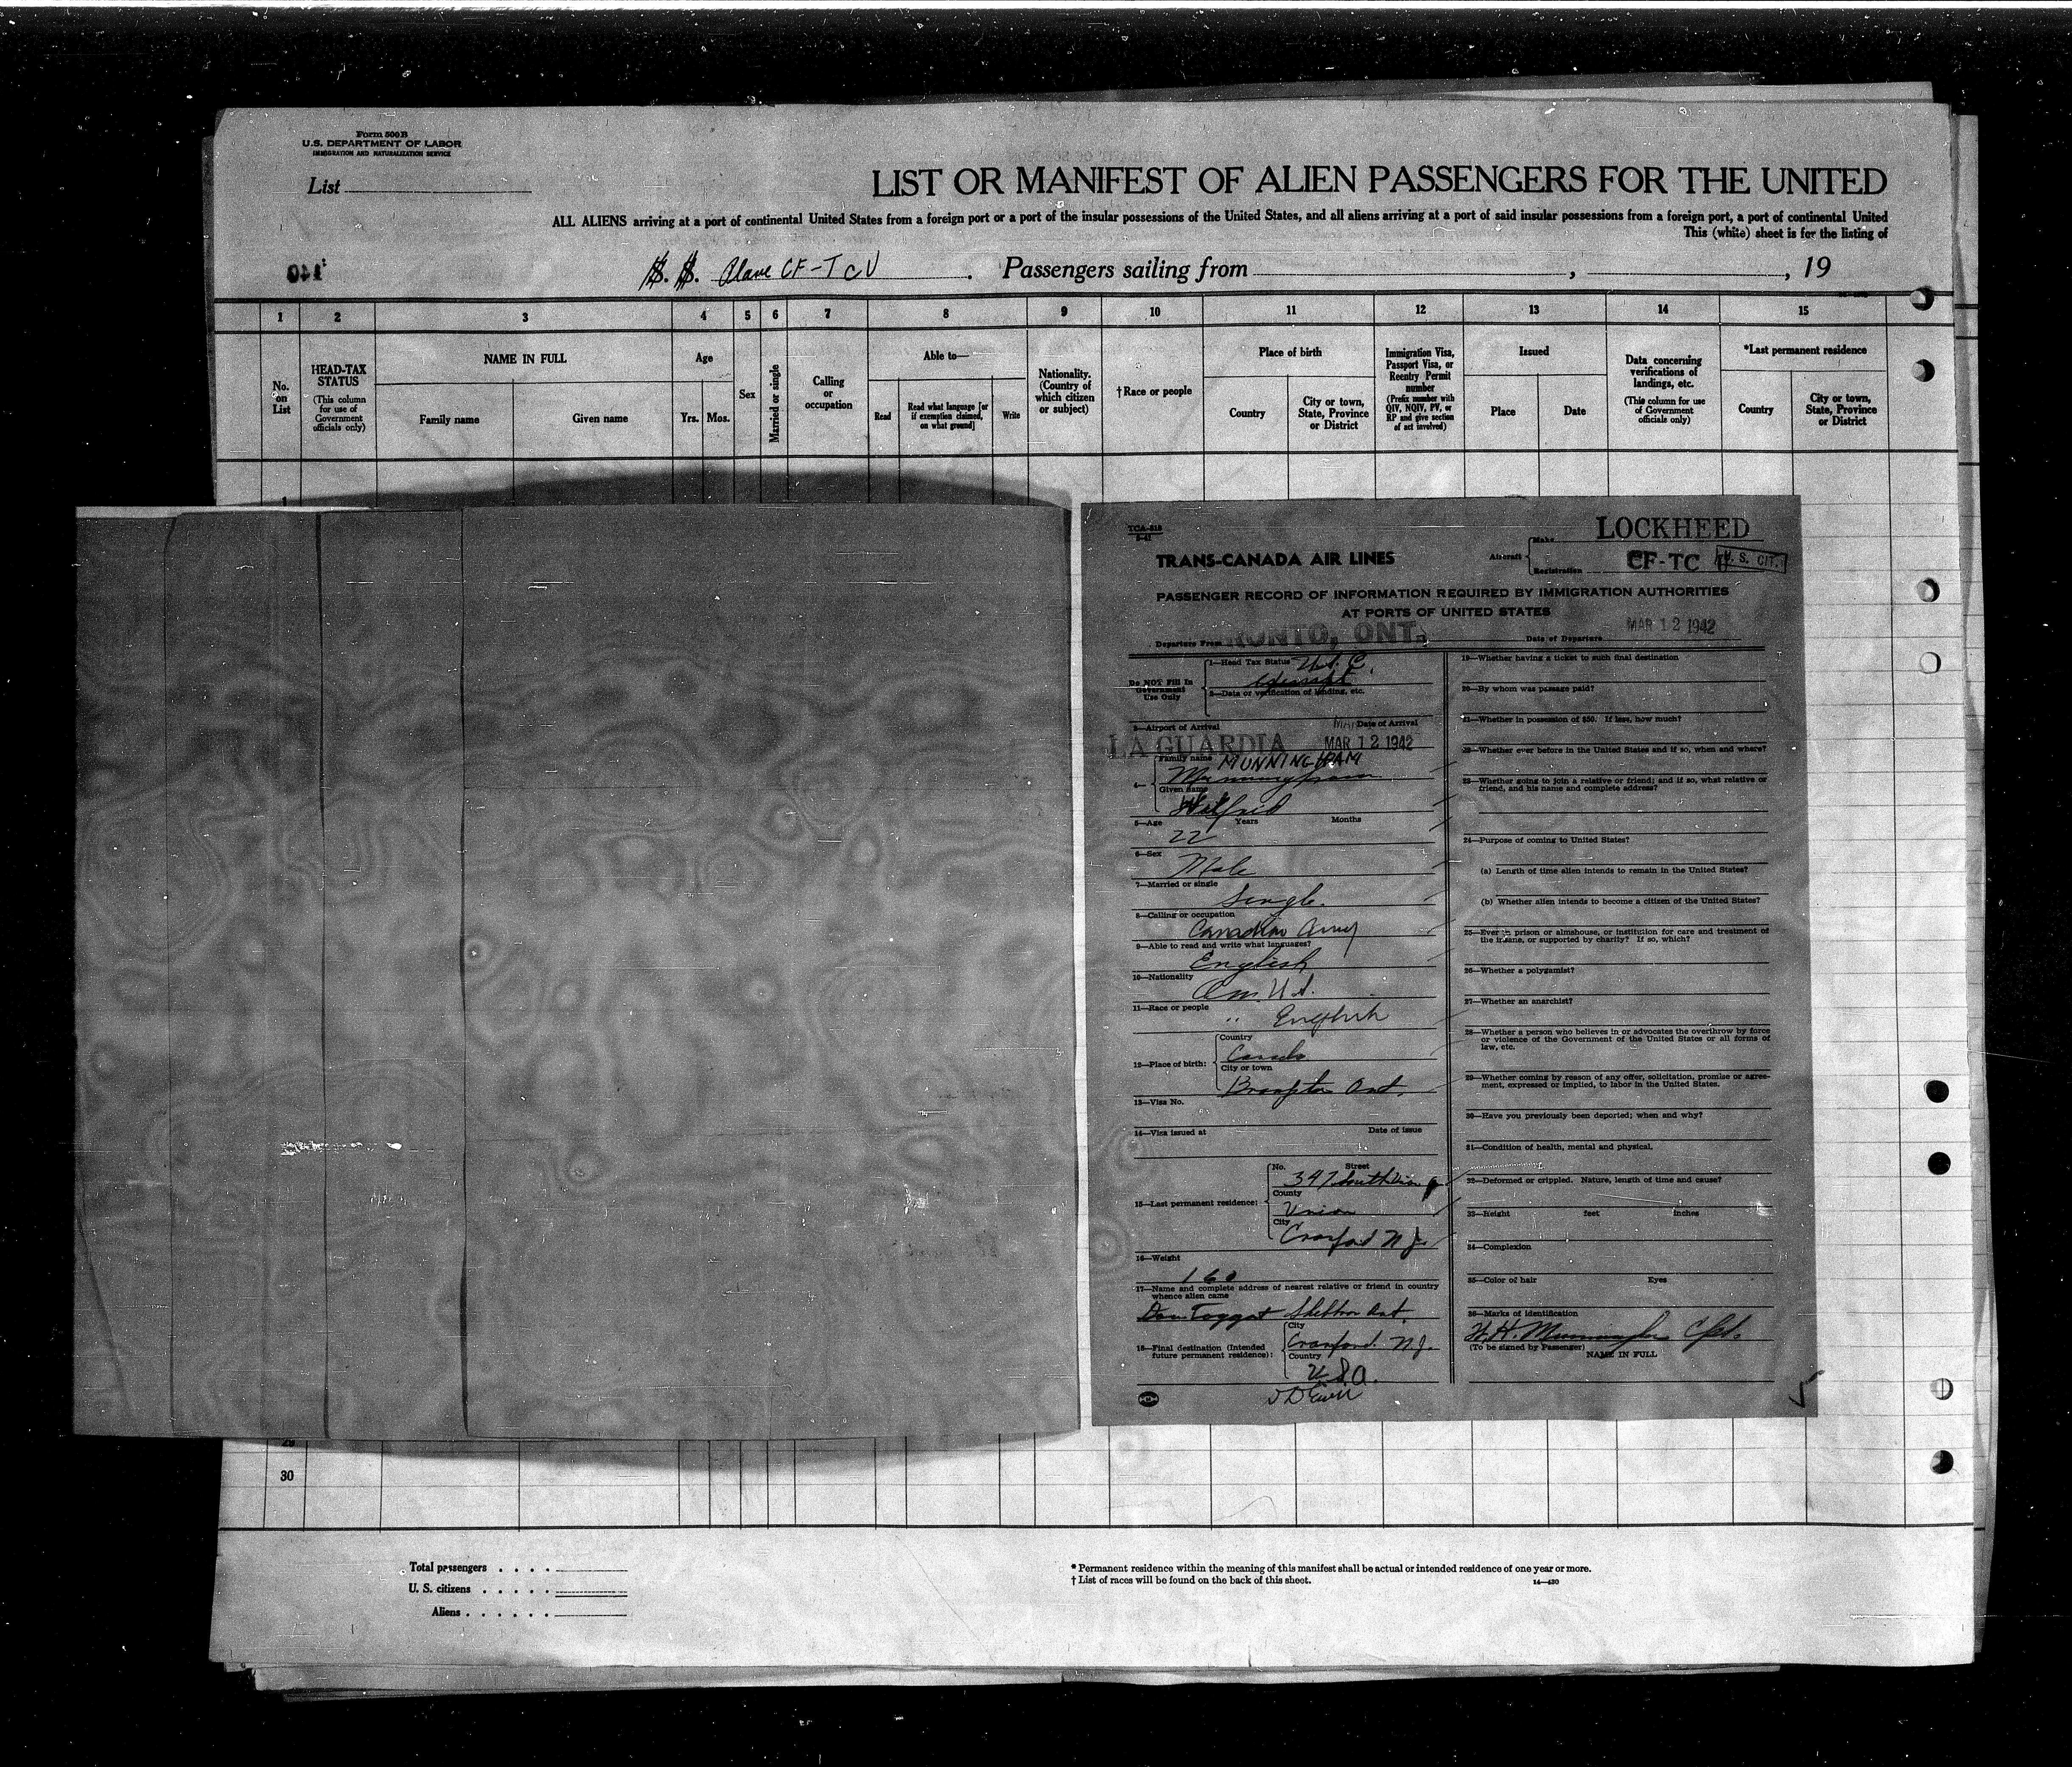 Form 500B
U.S. DEPARTMENT OF LABOR
IMMIGRATION AND NATURALIZATION SERVICE
List
LIST OR MANIFEST OF ALIEN PASSENGERS FOR THE UNITED
ALL ALIENS arriving at a port of continental United States from a foreign port or a port of the insular possessions of the United States, and all aliens arriving at a port of said insular possessions from a foreign port, a port of continental United
This (white) sheet is for the listing of
S. S. Plane CF-TCU. Passengers sailing from , , 19
1 2 3 4 5 6 7 8 9 10 11 12 13 14 15
No. on List
HEAD-TAX STATUS
(This column for use of Government officials only)
NAME IN FULL
Family name Given name
Age
Yrs. Mos.
Sex
Married or single
Calling or occupation
Able to—
Read
Read what language [or if exemption claimed, on what ground]
Write
Nationality. (Country of which citizen or subject)
†Race or people
Place of birth
Country
City or town, State, Province or District
Immigration Visa, Passport Visa, or Reentry Permit number
(Prefix number with QIV, NQIV, PV, or RP and give section of act involved)
Issued
Place Date
Data concerning verifications of landings, etc.
(This column for use of Government officials only)
*Last permanent residence
Country
City or town, State, Province or District
1
TCA-518
TRANS-CANADA AIR LINES
Aircraft
Make LOCKHEED
Registration CF-TC U
U. S. CIT.
PASSENGER RECORD OF INFORMATION REQUIRED BY IMMIGRATION AUTHORITIES
AT PORTS OF UNITED STATES
Departure From RONTO, ONT. Date of Departure MAR 12 1942
Do NOT Fill In Government Use Only
1—Head Tax Status U.S.C.
2—Data or verification of landing, etc.
3—Airport of Arrival Date of Arrival
LA GUARDIA MAR 12 1942
4—
Family name MUNNINGHAM
Munningham
Given name
Wilfrid
5—Age Years Months
22
6—Sex
Male
7—Married or single
Single.
8—Calling or occupation
Canadian Army
9—Able to read and write what languages?
English
10—Nationality
Am. U.S.
11—Race or people
" English
12—Place of birth:
Country
Canada
City or town
Brampton Ont.
13—Visa No.
14—Visa issued at Date of issue
15—Last permanent residence:
No. Street
347
County
Union
City
Cranford N.J.
16—Weight
160
17—Name and complete address of nearest relative or friend in country whence alien came
Ont.
18—Final destination (Intended future permanent residence):
City
Cranford. N.J.
Country
U.S.A.
19—Whether having a ticket to such final destination
20—By whom was passage paid?
21—Whether in possession of $50. If less, how much?
22—Whether ever before in the United States and if so, when and where?
23—Whether going to join a relative or friend; and if so, what relative or friend, and his name and complete address?
24—Purpose of coming to United States?
(a) Length of time alien intends to remain in the United States?
(b) Whether alien intends to become a citizen of the United States?
25—Ever in prison or almshouse, or institution for care and treatment of the insane, or supported by charity? If so, which?
26—Whether a polygamist?
27—Whether an anarchist?
28—Whether a person who believes in or advocates the overthrow by force or violence of the Government of the United States or all forms of law, etc.
29—Whether coming by reason of any offer, solicitation, promise or agreement, expressed or implied, to labor in the United States.
30—Have you previously been deported; when and why?
31—Condition of health, mental and physical.
32—Deformed or crippled. Nature, length of time and cause?
33—Height feet inches
34—Complexion
35—Color of hair Eyes
36—Marks of identification
W.H. Munningham Cpl.
(To be signed by Passenger)
NAME IN FULL
5
29
30
Total passengers
U. S. citizens
Aliens
* Permanent residence within the meaning of this manifest shall be actual or intended residence of one year or more.
† List of races will be found on the back of this sheet.
14—430